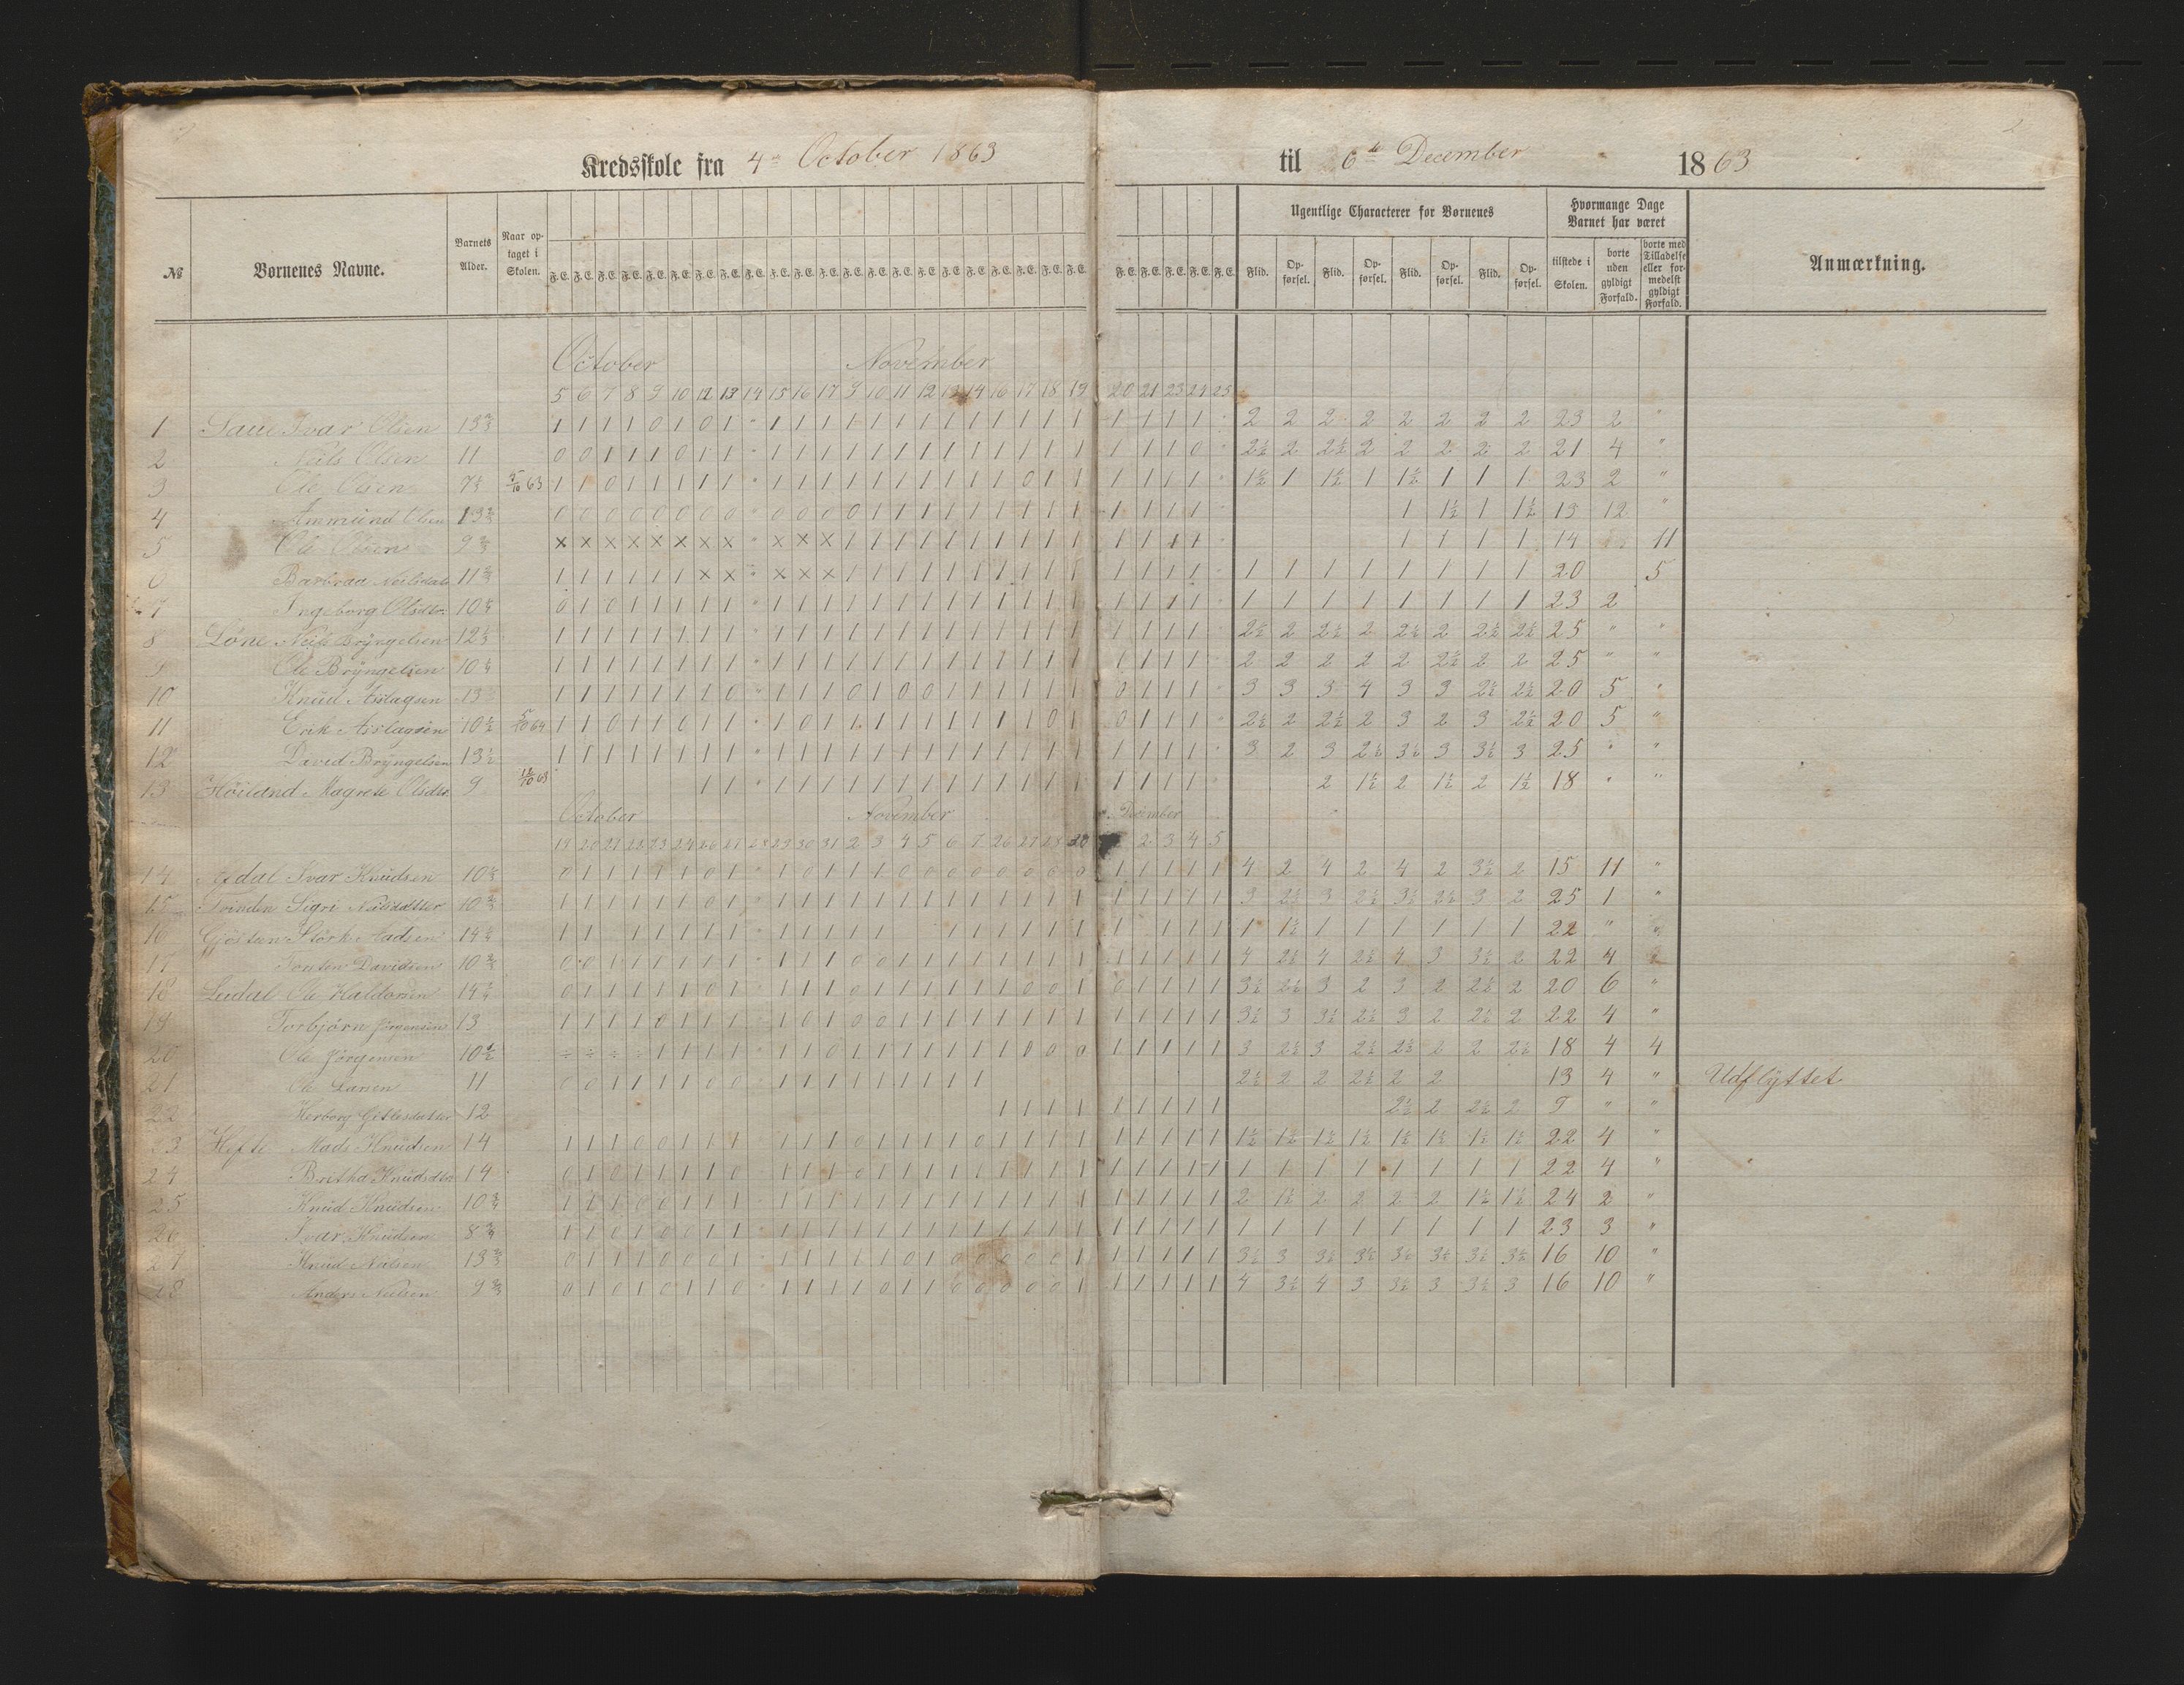 Kredsskole fra 4de October 1863 til 6te December 1863
№ Børnenes Navne. Barnets Alder. Naar optaget i Skolen. F.E. F.E. F.E. F.E. F.E. F.E. F.E. F.E. F.E. F.E. F.E. F.E. F.E. F.E. F.E. F.E. F.E. F.E. F.E. F.E. F.E. F.E. F.E. F.E. F.E. F.E. F.E. Ugentlige Characterer for Børnenes Flid. Opførsel. Flid. Opførsel. Flid. Opførsel. Flid. Opførsel. Hvormange Dage Barnet har været tilstede i Skolen. borte uden gyldigt Forfald. borte med Tilladelse eller formedelst gyldigt Forfald. Anmærkning.
October November
5 6 7 8 9 10 12 13 14 15 16 17 9 10 11 12 13 14 16 17 18 19 20 21 23 24 25
1 Ivar Olsen 13 1 1 1 1 0 1 0 1 " 1 1 1 1 1 1 1 1 1 1 1 1 1 1 1 1 1 2 2 2 2 2 2 2 2 23 2 "
2 Nils Olsen 11 0 0 1 1 1 0 1 1 " 1 1 1 1 1 1 1 1 1 1 1 1 1 1 1 1 0 2½ 2 2½ 2 2 2 2 2 21 4 "
3 Ole Olsen 5/10 63 1 1 0 1 1 1 1 1 " 1 1 1 1 1 1 1 1 1 1 0 1 1 1 1 1 1 1½ 1 1½ 1 1½ 1 1 1 23 2 "
4 Ammund Olsen 0 0 0 0 0 0 0 0 " 0 0 0 0 1 1 1 1 1 1 1 1 1 1 1 1 1 1 1½ 1 1½ 13 12 "
5 Ole Olsen × × × × × × × × " × × × 1 1 1 1 1 1 1 1 1 1 1 1 1 1 1 1 1 1 14 11
6 Barbraa 11 1 1 1 1 1 1 × × " × × × 1 1 1 1 1 1 1 1 1 1 1 1 1 1 1 1 1 1 1 1 1 1 20 5
7 Ingeborg Olsdtr. 0 1 0 1 1 1 1 1 " 1 1 1 1 1 1 1 1 1 1 1 1 1 1 1 1 1 1 1 1 1 1 1 1 1 23 2
8 Løne Neils Bryngelsen 1 1 1 1 1 1 1 1 " 1 1 1 1 1 1 1 1 1 1 1 1 1 1 1 1 1 2½ 2 2½ 2 2½ 2 2½ 2½ 25 " "
9 Ole Bryngelsen 1 1 1 1 1 1 1 1 " 1 1 1 1 1 1 1 1 1 1 1 1 1 1 1 1 1 2 2 2 2 2 2½ 2 2 25 " "
10 Knud Aslagsen 13 1 1 1 1 1 1 1 0 " 1 1 1 0 1 0 0 1 1 1 1 1 1 0 1 1 1 3 3 3 4 3 3 2½ 2½ 20 5 "
11 Erik Aslagsen 10½ 1 1 0 1 1 0 1 1 " 1 0 1 1 1 1 1 1 1 1 1 0 1 0 1 1 1 2½ 2 2½ 2 3 2 3 2½ 20 5 "
12 David Bryngelsen 13½ 1 1 1 1 1 1 1 1 " 1 1 1 1 1 1 1 1 1 1 1 1 1 1 1 1 1 3 2 3 2½ 3½ 3 3½ 3 25 " "
13 Høiland Magrete Olsdtr. 9 12/10 63 1 1 " 1 1 1 1 1 1 1 1 1 1 1 1 1 1 1 1 1 2 1½ 2 1½ 2 1½ 18 " "
October November December
19 20 21 22 23 24 26 27 28 29 30 31 2 3 4 5 6 7 26 27 28 30 2 3 4 5
14 Ivar Knudsen 0 1 1 1 1 1 0 1 " 1 0 1 1 1 0 0 0 0 0 0 0 0 1 1 1 1 1 4 2 4 2 4 2 3½ 2 15 11 "
15 Tvinden Sigri Nilsdatter 1 1 1 1 1 1 0 1 " 1 1 1 1 1 1 1 1 1 1 1 1 1 1 1 1 1 1 3 2½ 3 2½ 3½ 2½ 3 2 25 1 "
16 Madsen 1 1 1 1 1 1 1 " 1 1 1 1 1 1 1 1 1 1 1 1 1 1 1 1 1 1½ 1 1 1 1 1 1 22 " "
17 Davidsen 0 0 1 1 1 1 1 1 " 1 1 1 0 0 1 1 1 1 1 1 1 1 1 1 1 1 1 4 2½ 4 2½ 4 3 3½ 2 22 4
18 Ole Haldorsen 0 1 1 1 1 1 0 1 " 1 1 1 0 1 1 1 1 1 1 0 0 1 0 1 1 1 1 3½ 2½ 3 2 3 2 2½ 2 20 6 "
19 Torbjørn Jørgensen 13 1 1 1 1 0 1 1 1 " 1 0 1 0 0 1 1 1 1 1 1 1 1 1 1 1 1 1 3½ 3 3½ 2½ 3 2 2½ 2 22 4 "
20 Ole Jørgensen 10½ ÷ ÷ ÷ ÷ 1 1 1 1 " 1 1 0 1 1 1 1 1 1 1 0 0 0 1 1 1 1 1 3 2½ 3 2½ 2½ 2 2 2½ 18 4 4
21 Ole Larsen 11 0 0 1 1 1 1 0 0 " 1 1 1 1 1 1 1 1 1 2½ 2 2 2½ 2 2 13 4 " Udflyttet
22 Herborg Gitlesdatter 12 1 1 1 1 1 1 1 1 1 2½ 2 2½ 2 9 " "
23 Hefte Mads Knudsen 14 1 1 1 0 0 1 1 1 " 1 1 1 0 1 1 1 1 0 1 1 1 1 1 1 1 1 1 1½ 1½ 1½ 1½ 1½ 1½ 1½ 1½ 22 4 "
24 Britha Knudsdtr 14 0 1 0 1 1 1 1 0 " 1 1 1 0 1 1 1 1 1 1 1 1 1 1 1 1 1 1 1 1 1 1 1 1 1 1 22 4 "
25 Knud Knudsen 10¾ 1 1 1 0 0 1 1 1 " 1 1 1 1 1 1 1 1 1 1 1 1 1 1 1 1 1 1 2 1½ 2 2 2 2 1½ 1½ 24 2 "
26 Ivar Knudsen 8¾ 1 1 0 1 0 0 1 1 " 1 1 1 1 1 1 1 1 1 1 1 1 1 1 1 1 1 1 1 1 1 1 1 1 1 1 23 3 "
27 Knud Nilsen 0 1 1 1 0 0 0 1 " 1 1 1 1 1 0 1 0 0 0 0 0 1 1 1 1 1 1 3½ 3 3½ 3½ 3½ 3½ 3½ 3½ 16 10 "
28 Anders Nilsen 0 1 0 1 0 1 1 0 " 1 1 1 1 0 1 1 0 0 0 0 0 1 1 1 1 1 1 4 3½ 4 3 3½ 3 3½ 3 16 10 "